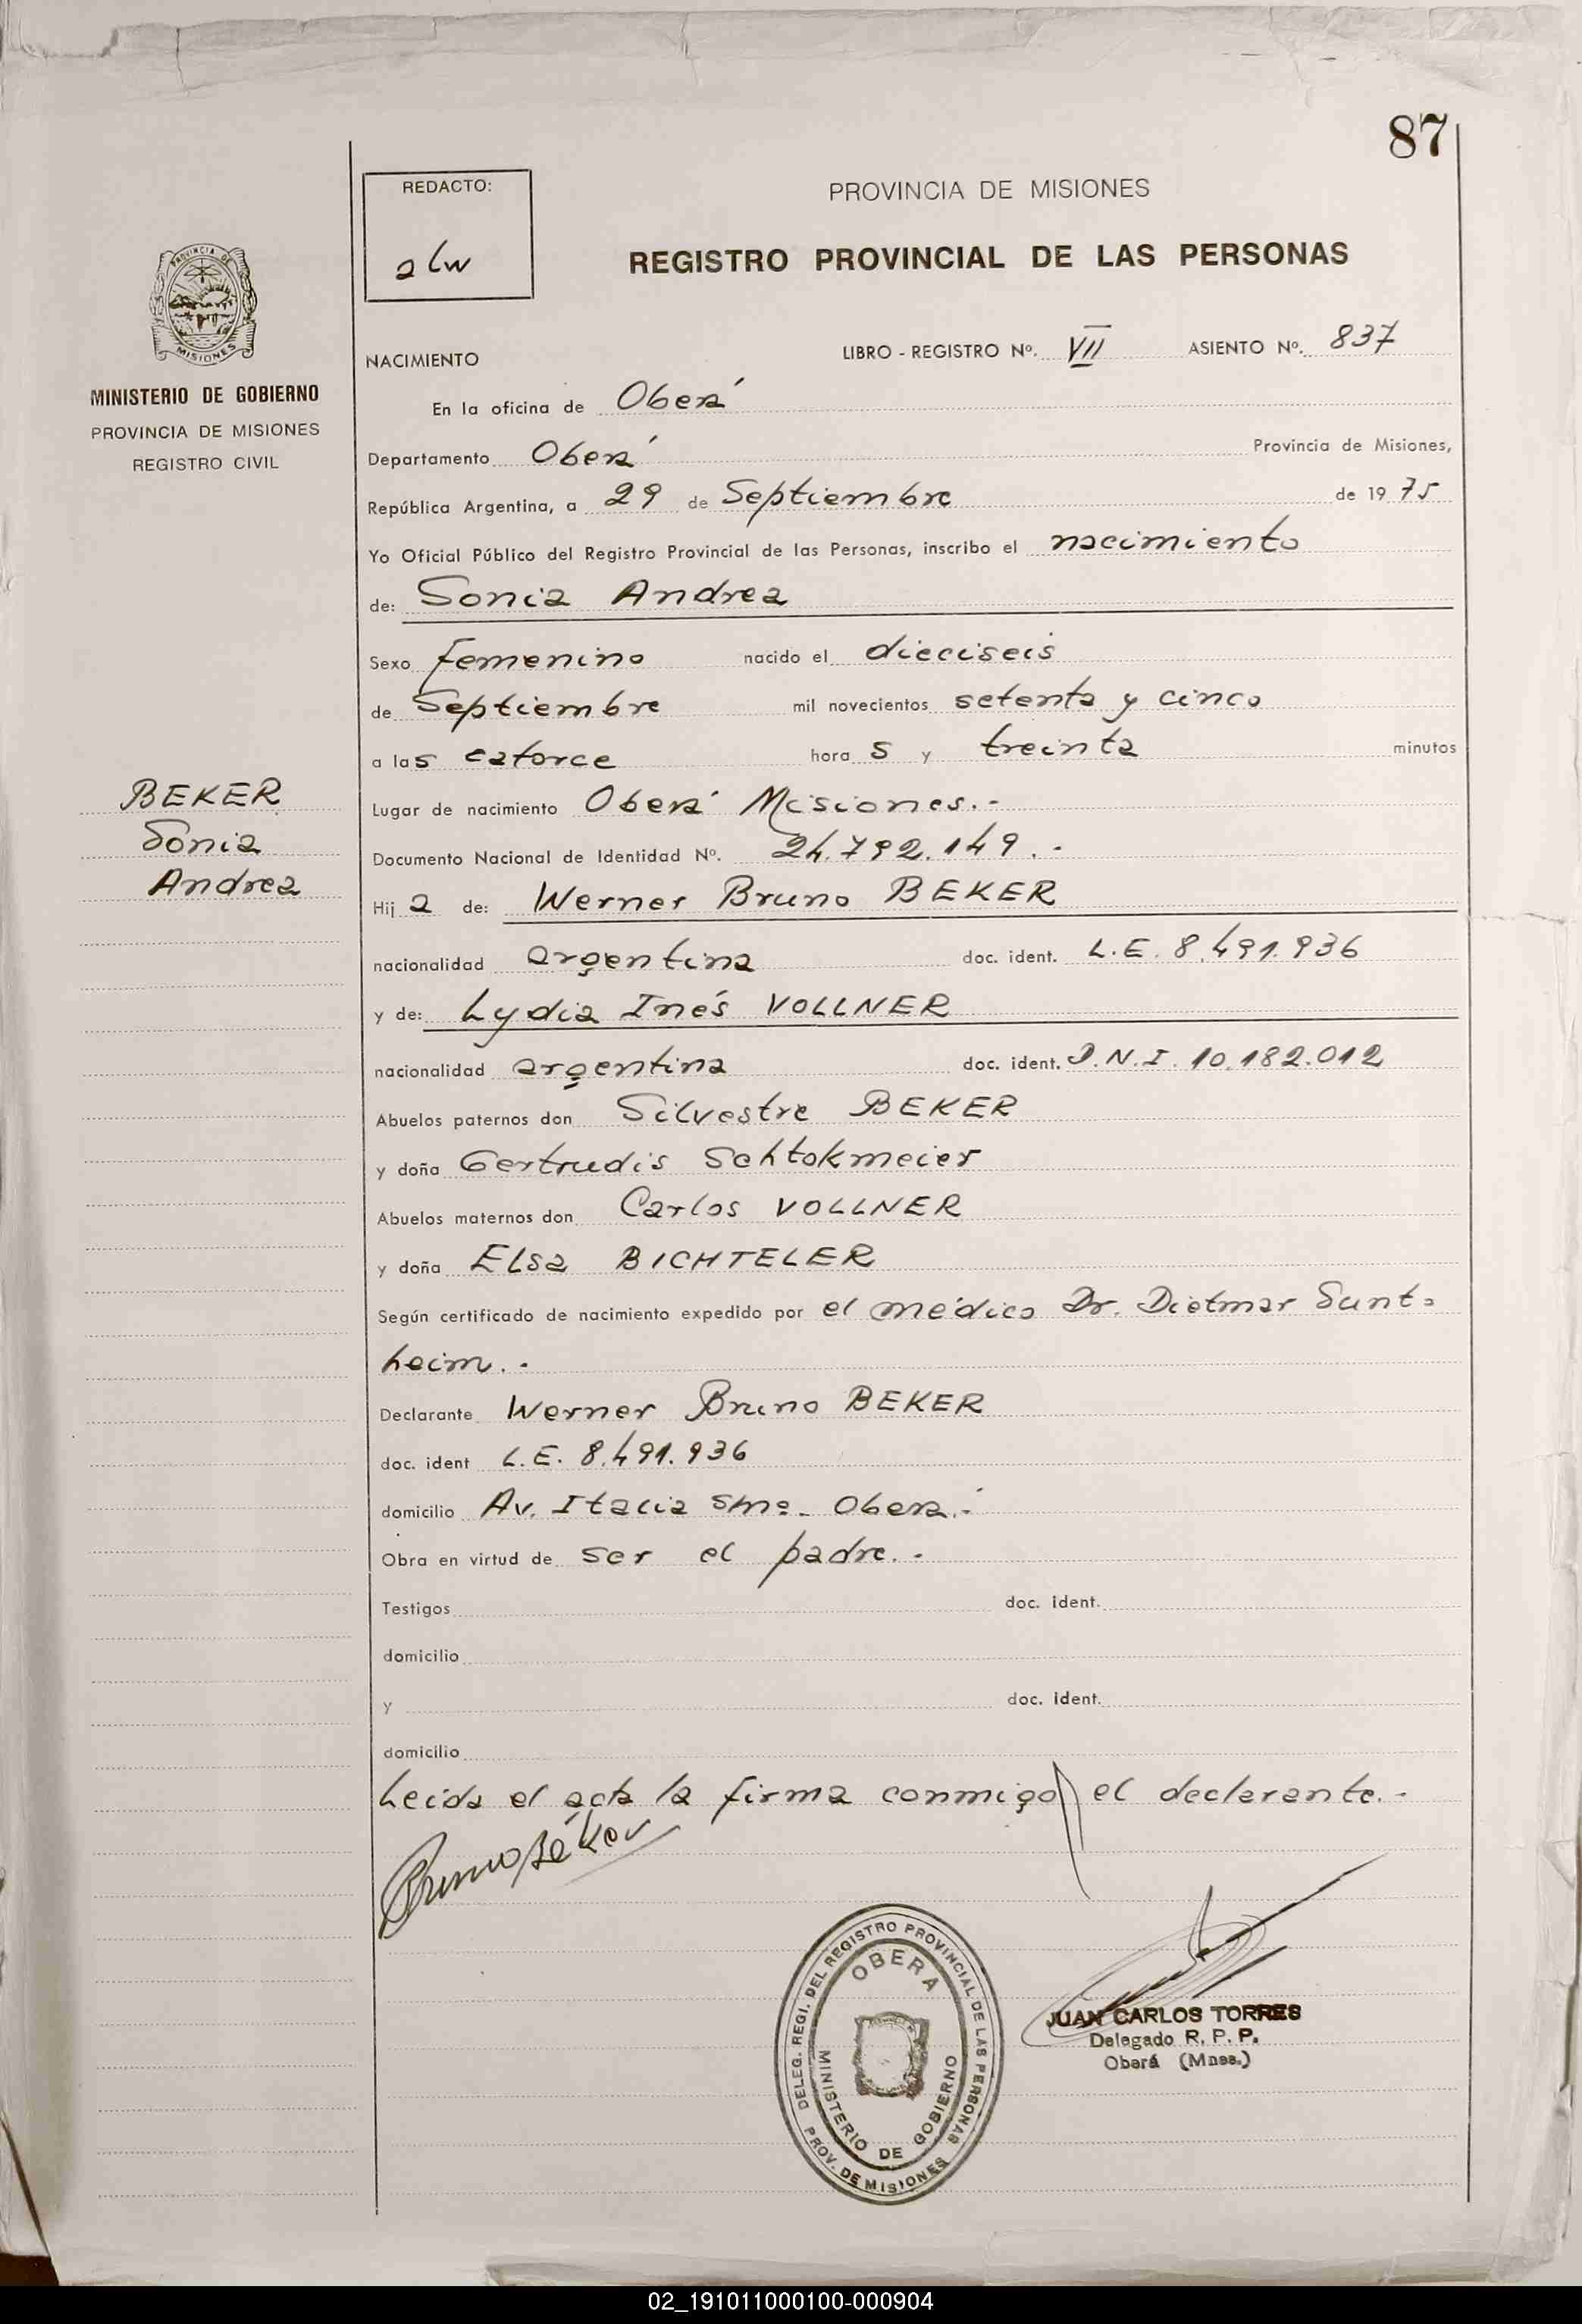 87
REDACTO:
alw
PROVINCIA DE MISIONES
REGISTRO PROVINCIAL DE LAS PERSONAS
PROVINCIA DE
MISIONES
MINISTERIO DE GOBIERNO
PROVINCIA DE MISIONES
REGISTRO CIVIL
NACIMIENTO LIBRO - REGISTRO Nº. VII ASIENTO Nº. 837
En la oficina de Oberá
Departamento Oberá Provincia de Misiones,
República Argentina, a 29 de Septiembre de 1975
Yo Oficial Público del Registro Provincial de las Personas, inscribo el nacimiento
de: Sonia Andrea
Sexo Femenino nacido el dieciseis
de Septiembre mil novecientos setenta y cinco
a las catorce horas y treinta minutos
BEKER
Sonia
Andrea
Lugar de nacimiento Oberá Misiones.-
Documento Nacional de Identidad Nº. 24.792.149.-
Hija de: Werner Bruno BEKER
nacionalidad argentina doc. ident. L.E. 8.491.936
y de: Lydia Inés VOLLNER
nacionalidad argentina doc. ident. D.N.I. 10.182.012
Abuelos paternos don Silvestre BEKER
y doña Gertrudis Schtokmeier
Abuelos maternos don Carlos VOLLNER
y doña Elsa BICHTELER
Según certificado de nacimiento expedido por el médico Dr. Dietmar Sunt=
heim.-
Declarante Werner Bruno BEKER
doc. ident L.E. 8.491.936
domicilio Av. Italia s/nº.- Oberá.-
Obra en virtud de ser el padre.-
Testigos doc. ident.
domicilio
y doc. ident.
domicilio
Leida el acta la firma conmigo el declarante.-
Bruno Beker
DELEG. REGI. DEL REGISTRO PROVINCIAL DE LAS PERSONAS
PROV. DE MISIONES
OBERA
MINISTERIO DE GOBIERNO
JUAN CARLOS TORRES
Delegado R. P. P.
Oberá (Mnes.)
02_191011000100-000904